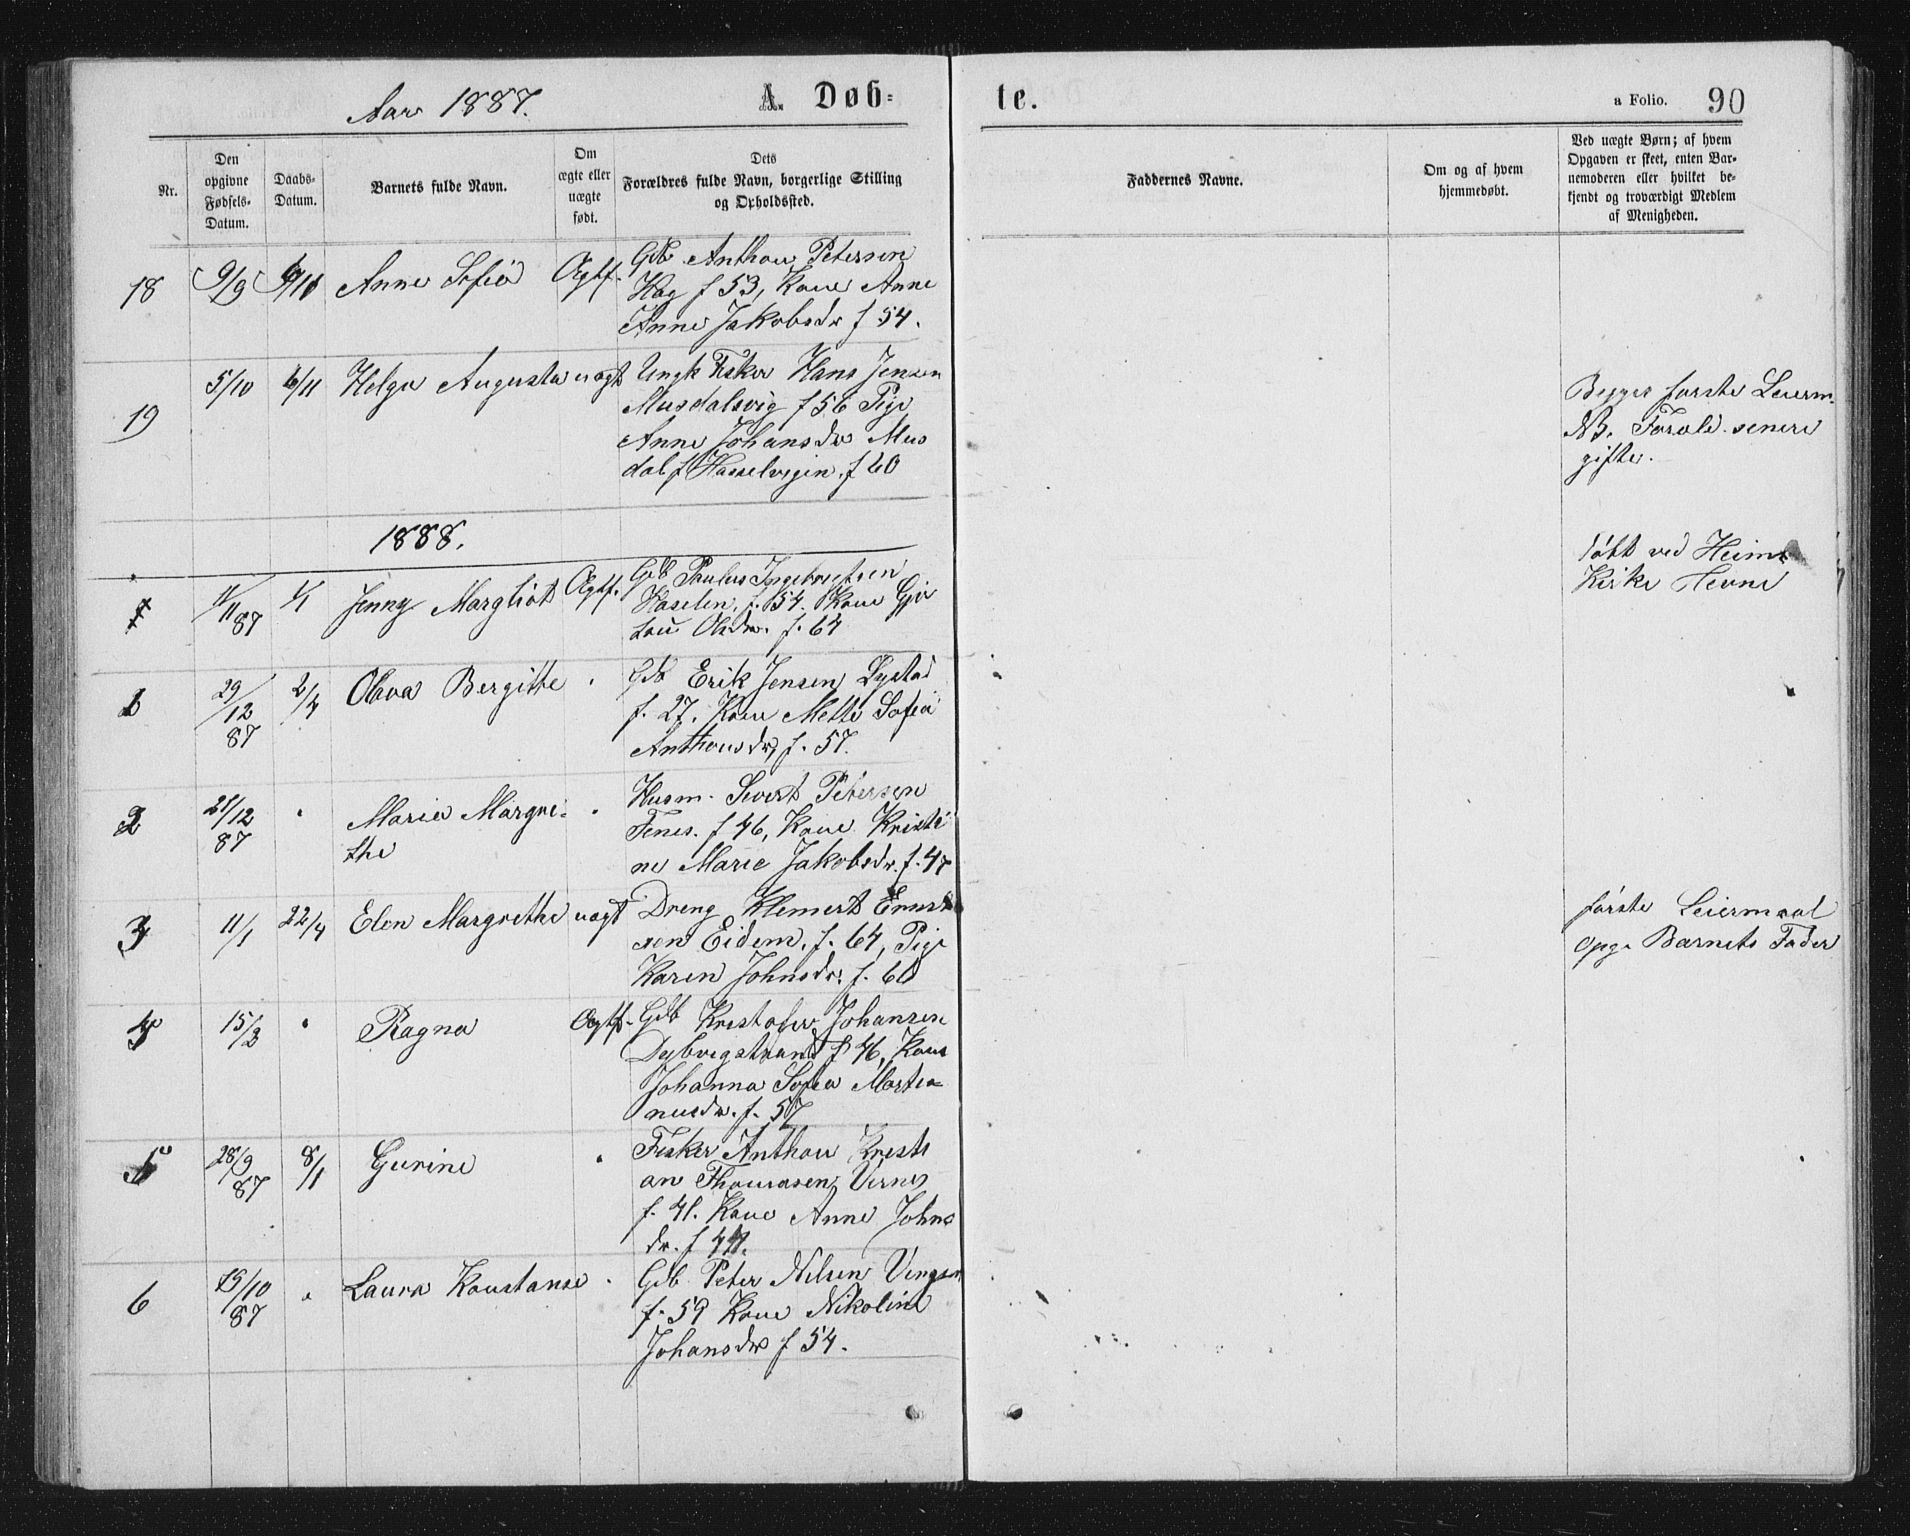 Aar 1887.
A. Døb=
te.
a Folio.
90
Nr.
Den
opgivne
Fødsels-
Datum.
Daabs-
Datum.
Barnets fulde Navn.
Om
ægte eller
uægte
født.
Dets
Forældres fulde Navn, borgerlige Stilling
og Opholdssted.
Faddernes Navne.
Om og af hvem
hjemmedøbt.
Ved uægte Børn; af hvem
Opgaven er skeet, enten Bar-
nemoderen eller hvilket be-
kjendt og troværdigt Medlem
af Menigheden.
18
9/9
6/11
Anne Sofie
Ægtf.
Gdb Anthon Petersen
Hag f 53, Kone Anne
Anne Jakobsdr f 54.
19
5/10
6/11
Helga Augusta
uægt
Ungk Fisker Hans Jensen
Musdalsvig f 56 Pige
Anne Johansdr Mus
dal f Hasselvigen. f 60
Begges første Leierm.
NB. Foræld. senere
gifte.
1888.
11/11 87
1/1
Jenny Margliot
Ægtf.
Gdb Paulus Ingebrigtsen
Haselen. f. 54. Kone Gje
Olsdr. f. 64
døbt ved Heims
Kirke Hevne
1
29/12
87
2/4
Olava Bergitte
Gdb Erik Jensen Lystad
f. 27. Kone Mette Sofie
Anthonsdr, f. 57.
2
21/12
87
Marie Margre-
the
Husm. Sivert Petersen
Fenes. f 46, Kone Kristi
ne Marie Jakobsdr. f. 47
3
11/1
22/4
Elen Margrethe
uægt
Dreng Klemert Ernst
sen Eidem. f. 64, Pige
Karen Johnsdr. f. 60
første Leiermaal
opg. Barnets Fader
15/3
Ragna
Ægtf.
Gdb Kristofer Johansen
Dybvigstrand f 46, Kone
Johanna Sofie Martia-
nusdr. f. 57
5
28/9
87
8/1
Gurine
Fisker Anthon Kristi
an Thomasen Vernes
f. 41. Kone Anne Johns
dr. f 44.
6
19/10
87
Laura Konstanse
Gdb Peter Nilsen Vingan
f. 59 Kone Nikoline
Johansdr f 54.